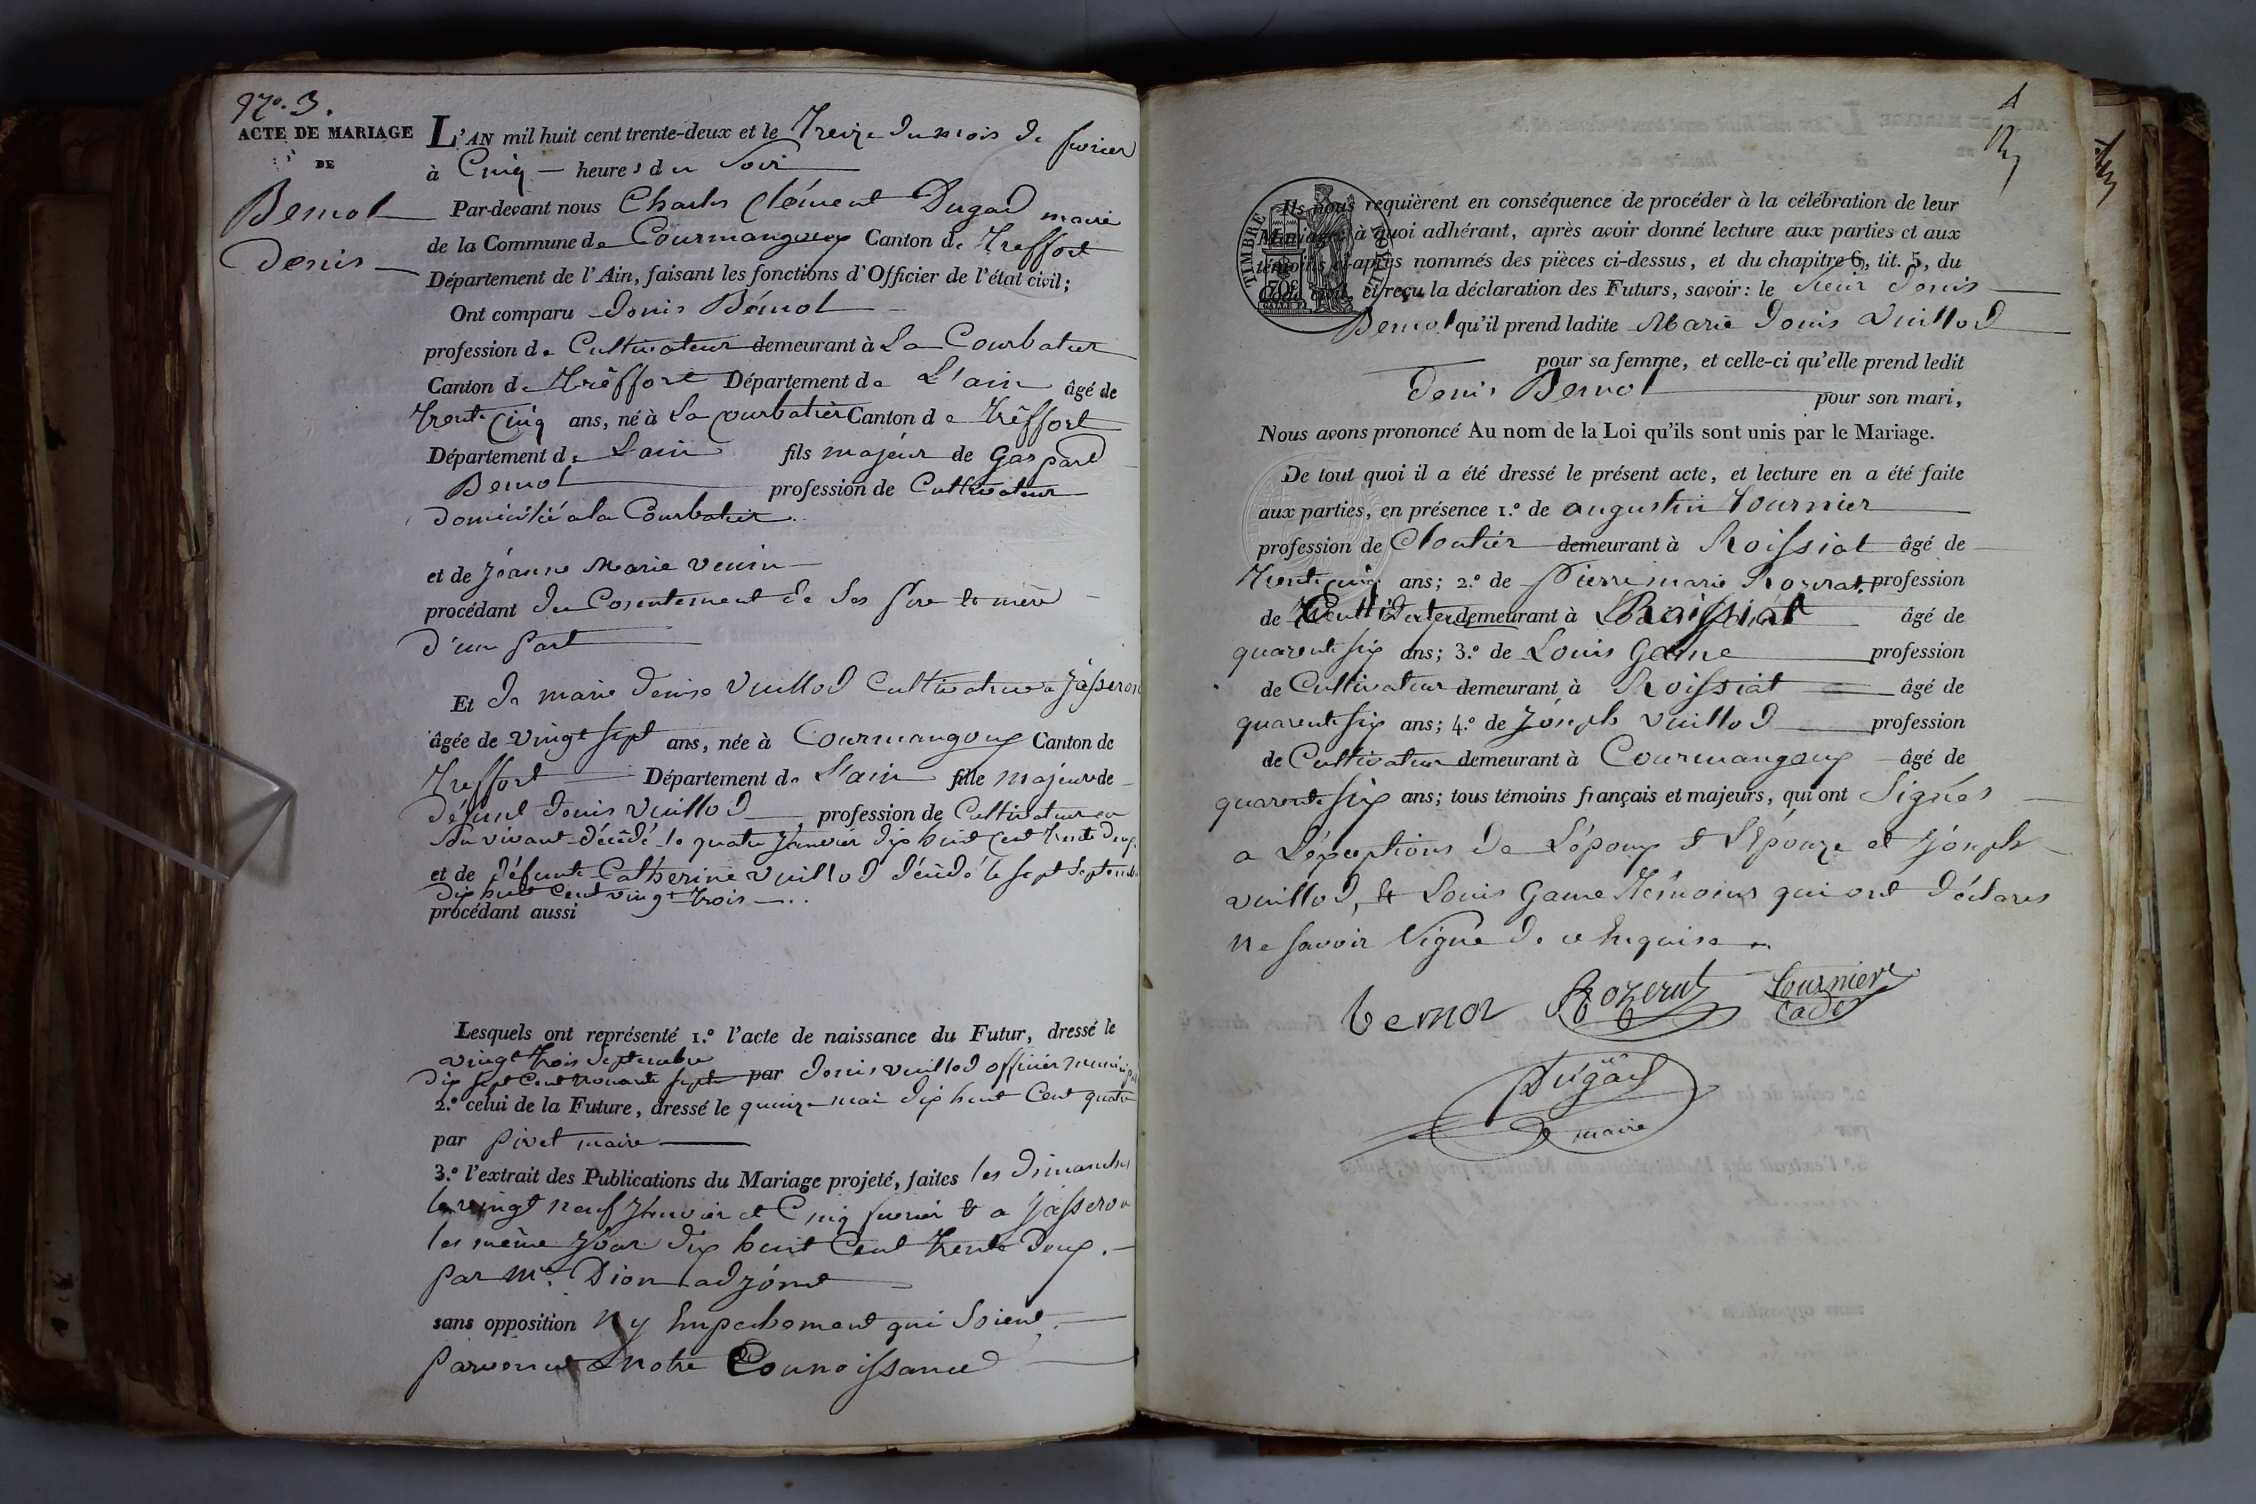 N.o 3.
ACTE DE MARIAGE
DE
Bernol
Denis
L'AN mil huit cent trente-deux et le Treize du mois de fevrier
à Cinq heures du Soir
Par-devant nous Charles Clément Dugad maire
de la Commune de Courmangoux Canton de Treffort
Département de l'Ain, faisant les fonctions d'Officier de l'état civil;
Ont comparu Denis Bérnol
profession de Cultivateur demeurant à La Courbatier
Canton de Trêffort Département de L'ain âgé de
Trente Cinq ans, né à La Courbatier Canton de Trêffort
Département de L'ain fils majeur de Gaspard
Bernol profession de Cultivateur
domicilié a la Courbatier
et de Jéanne Marie Venin
procédant du Consentement de Ses pere et mère
d'une part
Et de marie denise Vuillod Cultivatrice a Jasseron
âgée de vingt sept ans, née à Courmangoux Canton de
Treffort Département de L'ain fille majeure de
défunt Denis Vuillod, profession de Cultivateur en
Son vivant décédé le quatre Janvier dix huit Cent trente deux
et de défunte Cathérine Vuillod décédé le sept Septembre
dix huit Cent vingt trois
procédant aussi
Lesquels ont représenté 1.º l'acte de naissance du Futur, dressé le
vingt trois Septembre
dix sept Cent nonante sept par denis vuillod officier municipal
2.º celui de la Future, dressé le quinze mai dix huit Cent quatre
par pivet maire
3.º l'extrait des Publications du Mariage projeté, faites les dimanches
le vingt neuf Janvier et Cinq fevrier et a Jasseron
les même jour dix huit Cent trente deux.
par Mr. Dion adjoint
sans opposition ny Empechement qui soient
parvenu a notre Connoissance
4
Ils nous requièrent en conséquence de procéder à la célébration de leur
Mariage; à quoi adhérant, après avoir donné lecture aux parties et aux
témoins ci-après nommés des pièces ci-dessus, et du chapitre 6, tit. 5, du
Code civil, et reçu la déclaration des Futurs, savoir: le Sieur Denis
TIMBRE
70c
Bernol qu'il prend ladite Marie Denis Vuillod
pour sa femme, et celle-ci qu'elle prend ledit
Denis Bernol pour son mari,
Nous avons prononcé Au nom de la Loi qu'ils sont unis par le Mariage.
De tout quoi il a été dressé le présent acte, et lecture en a été faite
aux parties, en présence 1.º de augustin Tournier
profession de Cloutier demeurant à Roissiat âgé de
Trente cinq ans; 2.º de Pierre marie Rozerat, profession
de demeurant à Roissiat âgé de
quarente six ans; 3.º de Louis Game profession
de Cultivateur demeurant à Roissiat âgé de
quarente six ans; 4.º de Jóseph Vuillod profession
de Cultivateur demeurant à Courmangoux âgé de
quarente six ans; tous témoins français et majeurs, qui ont Signés
a L'éxceptions de L'époux et L'épouze et Jóseph
vuillod, et Louis Game Témoins qui ont déclarés
ne savoir Signé de ce Enquise
bernol Rozerat Tournier
Cadet
Dugad
maire